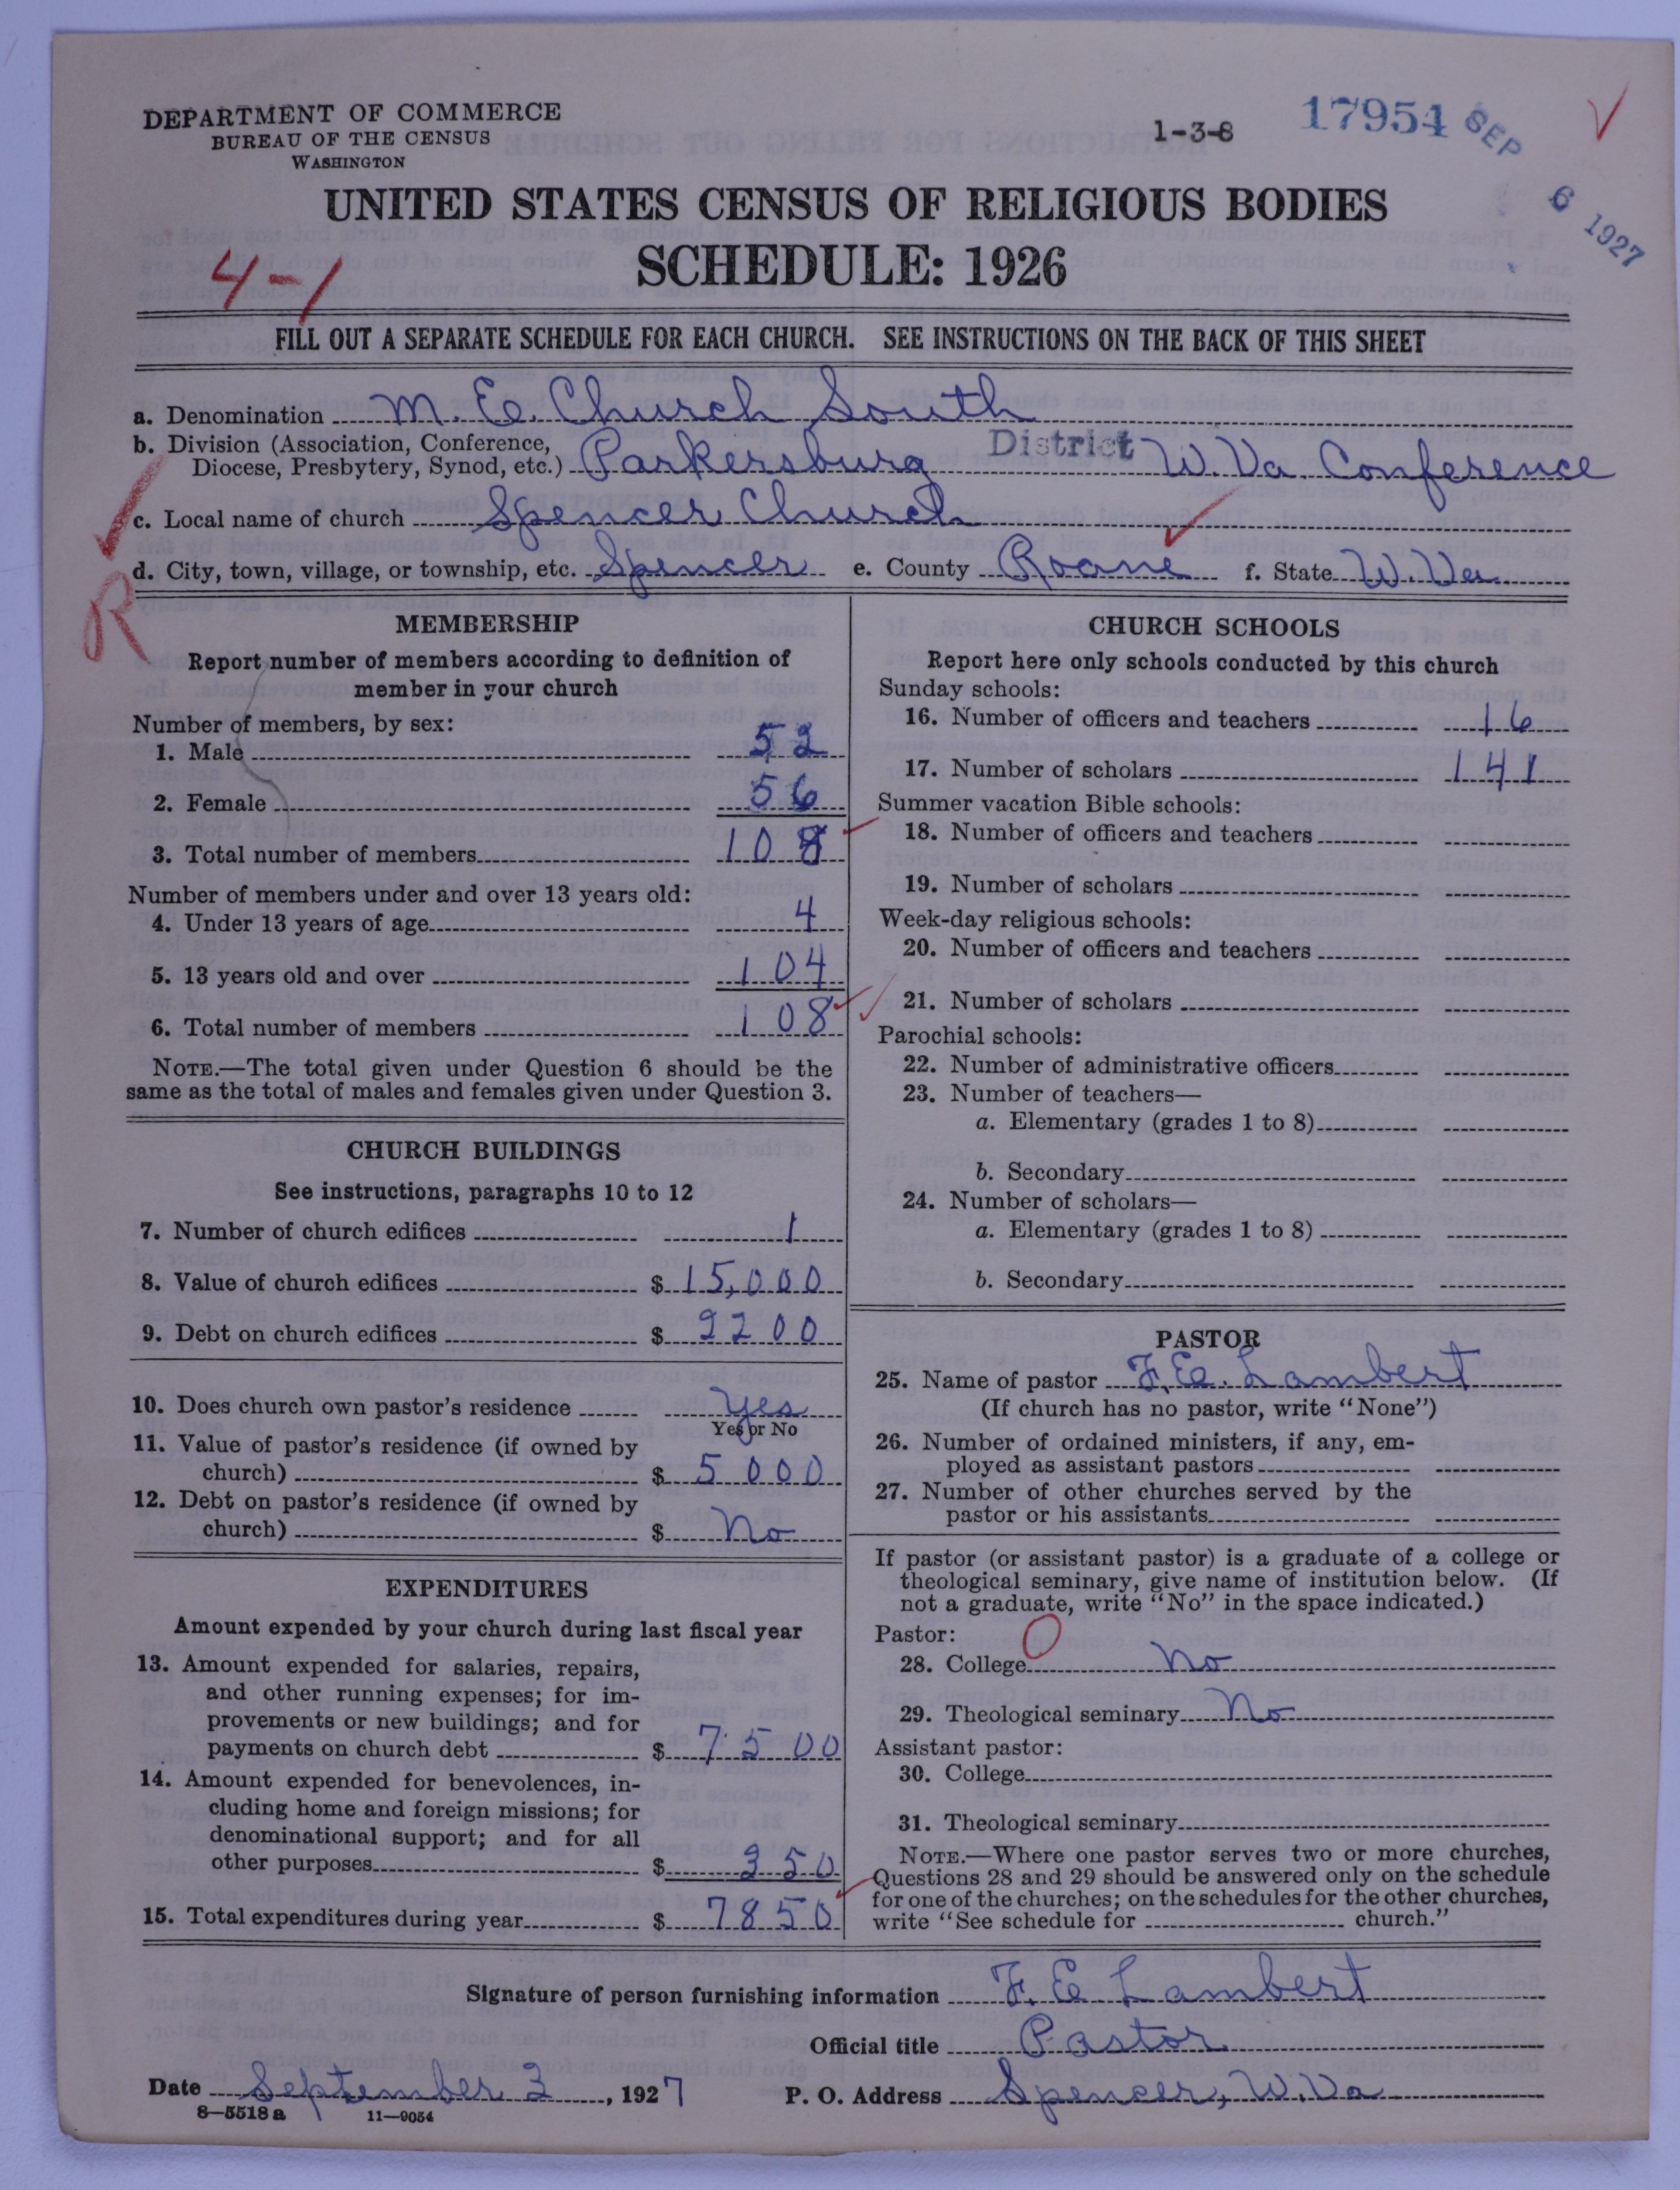 DEPARTMENT OF COMMERCE
BUREAU OF THE CENSUS
WASHINGTON
1-3-8
17954
SEP 6 1927
UNITED STATES CENSUS OF RELIGIOUS BODIES
SCHEDULE: 1926
4-1
FILL OUT A SEPARATE SCHEDULE FOR EACH CHURCH. SEE INSTRUCTIONS ON THE BACK OF THIS SHEET
a. Denomination M. E. Church South
b. Division (Association, Conference,
Diocese, Presbytery, Synod, etc.) Parkersburg District W. Va. Conference
c. Local name of church Spencer Church
d. City, town, village, or township, etc. Spencer e. County Roane f. State W. Va
R
MEMBERSHIP
Report number of members according to definition of
member in your church
Number of members, by sex:
1. Male 52
2. Female 56
3. Total number of members 108
Number of members under and over 13 years old:
4. Under 13 years of age 4
5. 13 years old and over 104
6. Total number of members 108
NOTE.—The total given under Question 6 should be the
same as the total of males and females given under Question 3.
CHURCH BUILDINGS
See instructions, paragraphs 10 to 12
7. Number of church edifices 1
8. Value of church edifices $ 15,000
9. Debt on church edifices $ 9200
10. Does church own pastor's residence Yes
Yes or No
11. Value of pastor's residence (if owned by
church) $ 5000
12. Debt on pastor's residence (if owned by
church) $ No
EXPENDITURES
Amount expended by your church during last fiscal year
13. Amount expended for salaries, repairs,
and other running expenses; for im-
provements or new buildings; and for
payments on church debt $ 7500
14. Amount expended for benevolences, in-
cluding home and foreign missions; for
denominational support; and for all
other purposes $ 350
15. Total expenditures during year $ 7850
CHURCH SCHOOLS
Report here only schools conducted by this church
Sunday schools:
16. Number of officers and teachers 16
17. Number of scholars 141
Summer vacation Bible schools:
18. Number of officers and teachers
19. Number of scholars
Week-day religious schools:
20. Number of officers and teachers
21. Number of scholars
Parochial schools:
22. Number of administrative officers
23. Number of teachers—
a. Elementary (grades 1 to 8)
b. Secondary
24. Number of scholars—
a. Elementary (grades 1 to 8)
b. Secondary
PASTOR
25. Name of pastor F. E. Lambert
(If church has no pastor, write "None")
26. Number of ordained ministers, if any, em-
ployed as assistant pastors
27. Number of other churches served by the
pastor or his assistants
If pastor (or assistant pastor) is a graduate of a college or
theological seminary, give name of institution below. (If
not a graduate, write "No" in the space indicated.)
Pastor:
28. College No
29. Theological seminary No
Assistant pastor:
30. College
31. Theological seminary
NOTE.—Where one pastor serves two or more churches,
Questions 28 and 29 should be answered only on the schedule
for one of the churches; on the schedules for the other churches,
write "See schedule for church."
Signature of person furnishing information F. E Lambert
Official title Pastor
Date September 3, 1927 P. O. Address Spencer, W. Va
8—5518a 11—9054